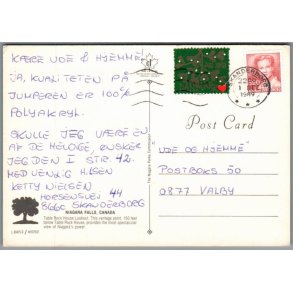 KÆRE UDE & HJEMME!
JA, KVALITETEN PÅ
JUMPEREN ER 100%
POLYAKRYL.
SKULLE JEG VÆRE ÉN
AF DE HELDIGE, ØNSKER
JEG DEN I STR. 42.
MED VENLIG HILSEN
KETTY NIELSEN
HORSENSVEJ 44
8660 SKANDERBORG
NIAGARA FALLS, CANADA
Table Rock House Lookout. This vantage point, 150 feet
below Table Rock House, provides the most spectacular
view of Niagara's power.
SKANDERBORG
Post Card
UDE OG HJEMME
POSTBOKS 50
0877 VALBY